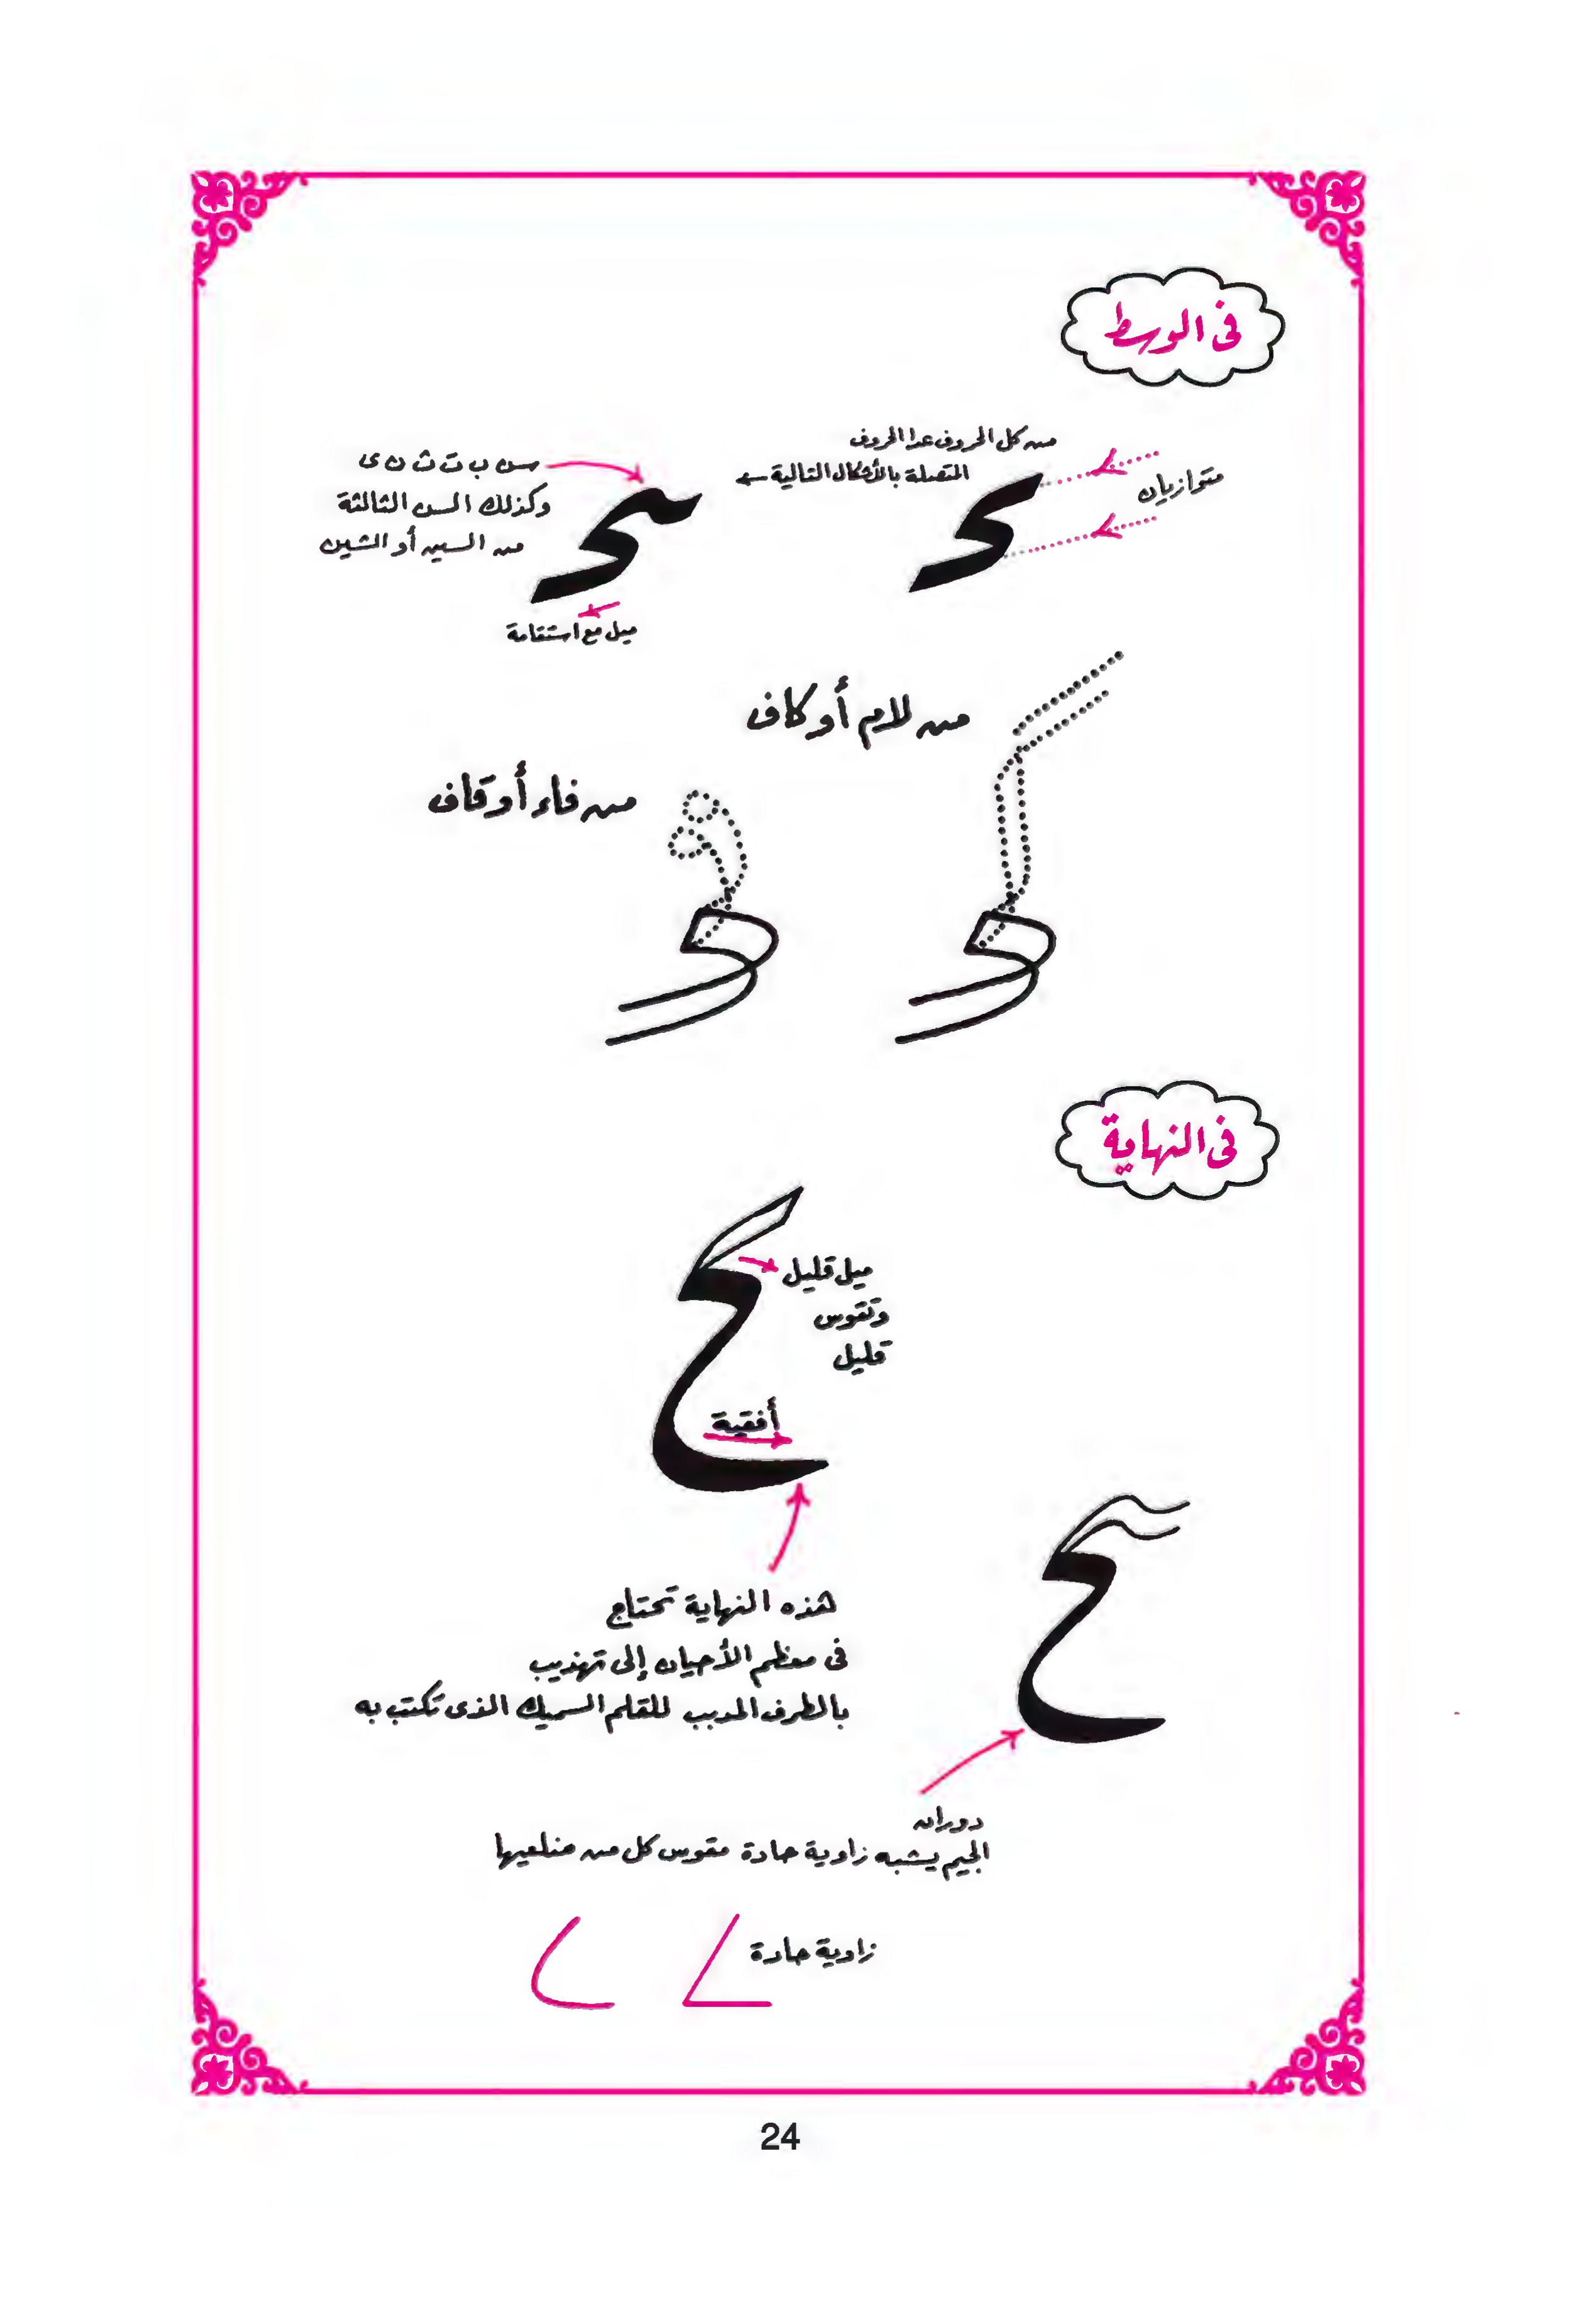 فى الوسط
من كل الحروف عدا الحروف
المتصلة بالأشكال التالية
متوازيان
من ب ت ث ن ى
وكذلك السن الثالثة
من السين أو الشين
ميل مع استقامة
من لام أو كاف
من فاء أو قاف
فى النهاية
ميل قليل
وتقوس
قليل
أفقية
هذه النهاية تحتاج
فى معظم الأحيان إلى تهذيب
بالطرف المدبب للقلم السميك الذى تكتب به
دوران
الجيم يشبه زاوية حادة مقوس كل من ضلعيها
زاوية حادة
24